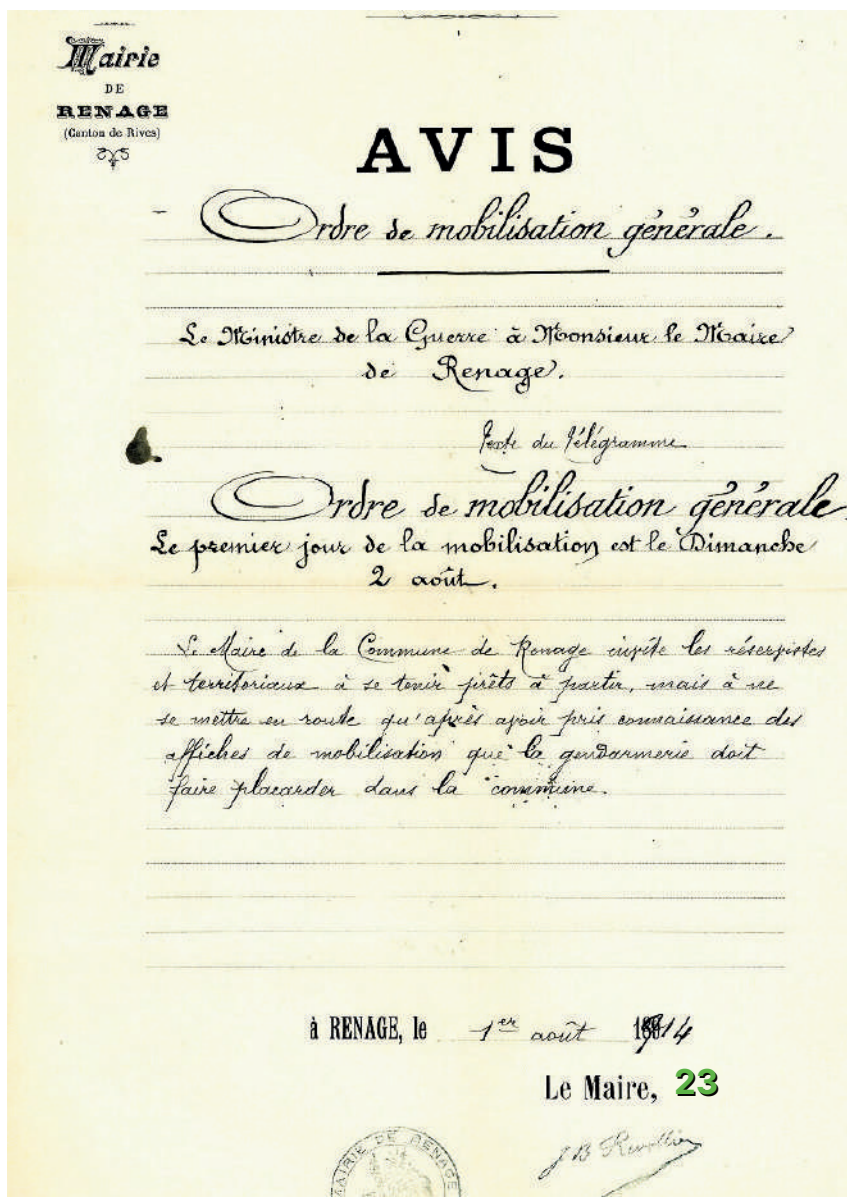 Mairie
DE
RENAGE
(Canton de Rives)
AVIS
Ordre de mobilisation générale.
Le Ministre de la Guerre à Monsieur le Maire
de Renage.
Texte du Télégramme
Ordre de mobilisation générale.
Le premier jour de la mobilisation est le Dimanche
2 août.
Le Maire de la Commune de Renage invite les réservistes
et territoriaux à se tenir prêts à partir, mais à ne
se mettre en route qu'après avoir pris connaissance des
affiches de mobilisation que la gendarmerie doit
faire placarder dans la commune.
à RENAGE, le 1er août 1914
Le Maire, 23
MAIRIE DE RENAGE
J B